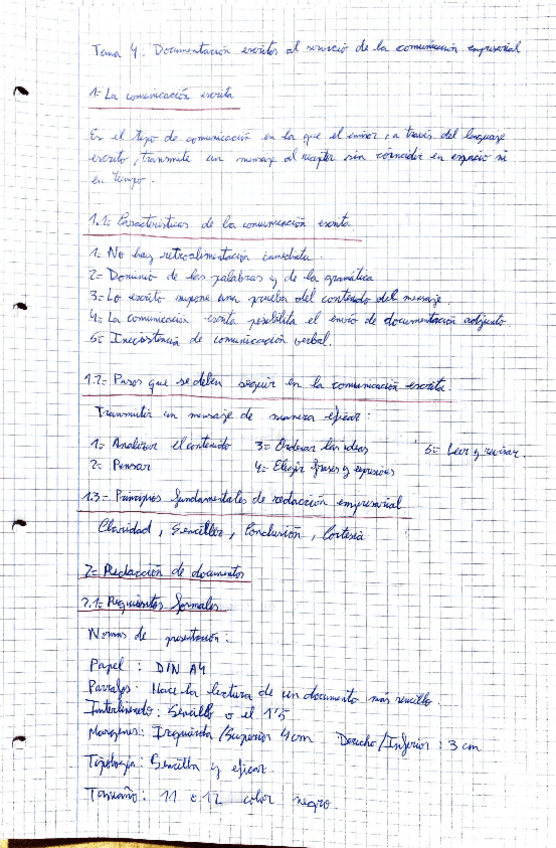 Tema 4. Documentación escritos al servicio de la comunicación empresarial
1= La comunicación escrita
Es el tipo de comunicación en la que el emisor, a través del lenguaje
escrito, transmite un mensaje al receptor sin coincidir en espacio ni
en tiempo.
1.1= Características de la comunicación escrita
1= No hay retroalimentación inmediata.
2= Dominio de las palabras y de la gramática
3= Lo escrito supone una prueba del contenido del mensaje.
4= La comunicación escrita posibilita el envío de documentación adjunta.
5= Inexistencia de comunicación verbal.
1.2= Pasos que se deben seguir en la comunicación escrita.
Transmitir un mensaje de manera eficaz:
1= Analizar el contenido 3= Ordenar las ideas 5= Leer y revisar.
2= Pensar 4= Elegir frases y expresiones
1.3= Principios fundamentales de redacción empresarial
Claridad, Sencillez, Conclusión, Cortesía
2= Redacción de documentos
2.1= Requisitos formales
Normas de presentación:
Papel: DIN A4
Parrafos: Hace la lectura de un documento más sencillo.
Interlineado: Sencillo o el 1'5
Margenes: Izquierda/Superior 4cm Derecho/Inferior: 3 cm
Tipología: Sencilla y eficaz.
Tamaño: 11 o 12 color negro.